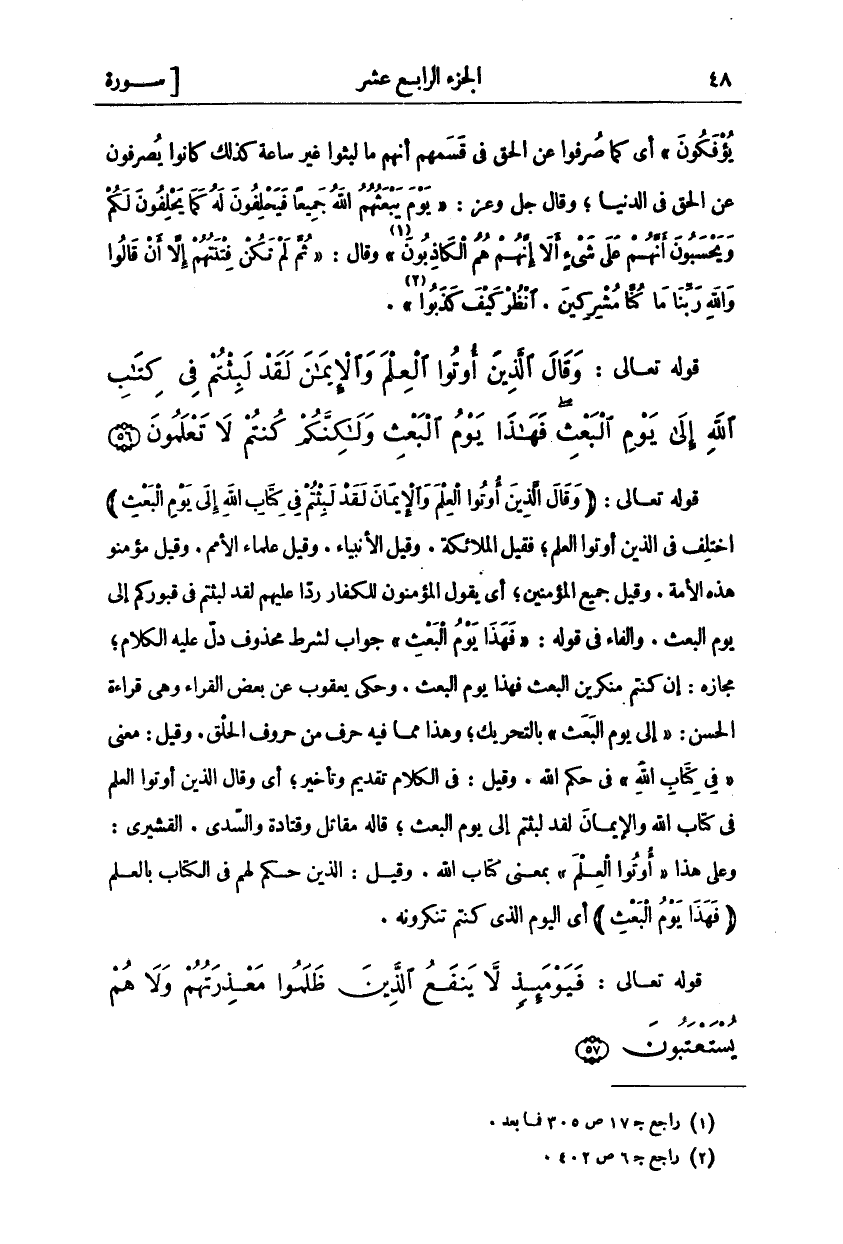 ٤٨ الجزء الرابع عشر [ سورة
يُؤْفَكُونَ » أى كما صُرفوا عن الحق فى قَسَمهم أنهم ما لبثوا غير ساعة كذلك كانوا يُصرفون
عن الحق فى الدنيا ؛ وقال جل وعز : « يَوْمَ يَبْعَثُهُمُ اللهُ جَمِيعًا فَيَحْلِفُونَ لَهُ كَمَا يَحْلِفُونَ لَكُمْ
وَيَحْسَبُونَ أَنَّهُمْ عَلَى شَيْءٍ أَلَا إِنَّهُمْ هُمُ الْكَاذِبُونَ(١) » وقال : « ثُمَّ لَمْ تَكُنْ فِتْنَتُهُمْ إِلَّا أَنْ قَالُوا
وَاللهِ رَبِّنَا مَا كُنَّا مُشْرِكِينَ . اُنْظُرْ كَيْفَ كَذَبُوا(٢) » .
قوله تعالى : وَقَالَ ٱلَّذِينَ أُوتُوا ٱلْعِلْمَ وَٱلْإِيمَٰنَ لَقَدْ لَبِثْتُمْ فِى كِتَٰبِ
ٱللَّهِ إِلَىٰ يَوْمِ ٱلْبَعْثِ ۖ فَهَٰذَا يَوْمُ ٱلْبَعْثِ وَلَٰكِنَّكُمْ كُنتُمْ لَا تَعْلَمُونَ ٥٦
قوله تعالى : ﴿ وَقَالَ الَّذِينَ أُوتُوا الْعِلْمَ وَالْإِيمَانَ لَقَدْ لَبِثْتُمْ فِي كِتَابِ اللهِ إِلَى يَوْمِ الْبَعْثِ ﴾
اختلِف فى الذين أوتوا العلم ؛ فقيل الملائكة . وقيل الأنبياء . وقيل علماء الأمم . وقيل مؤمنو
هذه الأمة . وقيل جميع المؤمنين ؛ أى يقول المؤمنون للكفار ردّا عليهم لقد لبثتم فى قبوركم إلى
يوم البعث . والفاء فى قوله : « فَهَذَا يَوْمُ الْبَعْثِ » جواب لشرط محذوف دلّ عليه الكلام ؛
مجازه : إن كنتم منكرين البعث فهذا يوم البعث . وحكى يعقوب عن بعض القراء وهى قراءة
الحسن : « إلى يوم البَعَث » بالتحريك ؛ وهذا مما فيه حرف من حروف الحلْق . وقيل : معنى
« فِي كِتَابِ اللهِ » فى حكم الله . وقيل : فى الكلام تقديم وتأخير ؛ أى وقال الذين أوتوا العلم
فى كتاب الله والإيمانَ لقد لبثتم إلى يوم البعث ؛ قاله مقاتل وقتادة والسّدى . القشيرى :
وعلى هذا « أُوتُوا الْعِلْمَ » بمعنى كتاب الله . وقيل : الذين حكم لهم فى الكتاب بالعلم
﴿ فَهَذَا يَوْمُ الْبَعْثِ ﴾ أى اليوم الذى كنتم تنكرونه .
قوله تعالى : فَيَوْمَئِذٍ لَّا يَنفَعُ ٱلَّذِينَ ظَلَمُوا مَعْذِرَتُهُمْ وَلَا هُمْ
يُسْتَعْتَبُونَ ٥٧
(١) راجع جـ ١٧ ص ٣٠٥ فما بعد .
(٢) راجع جـ ٦ ص ٤٠٢ .